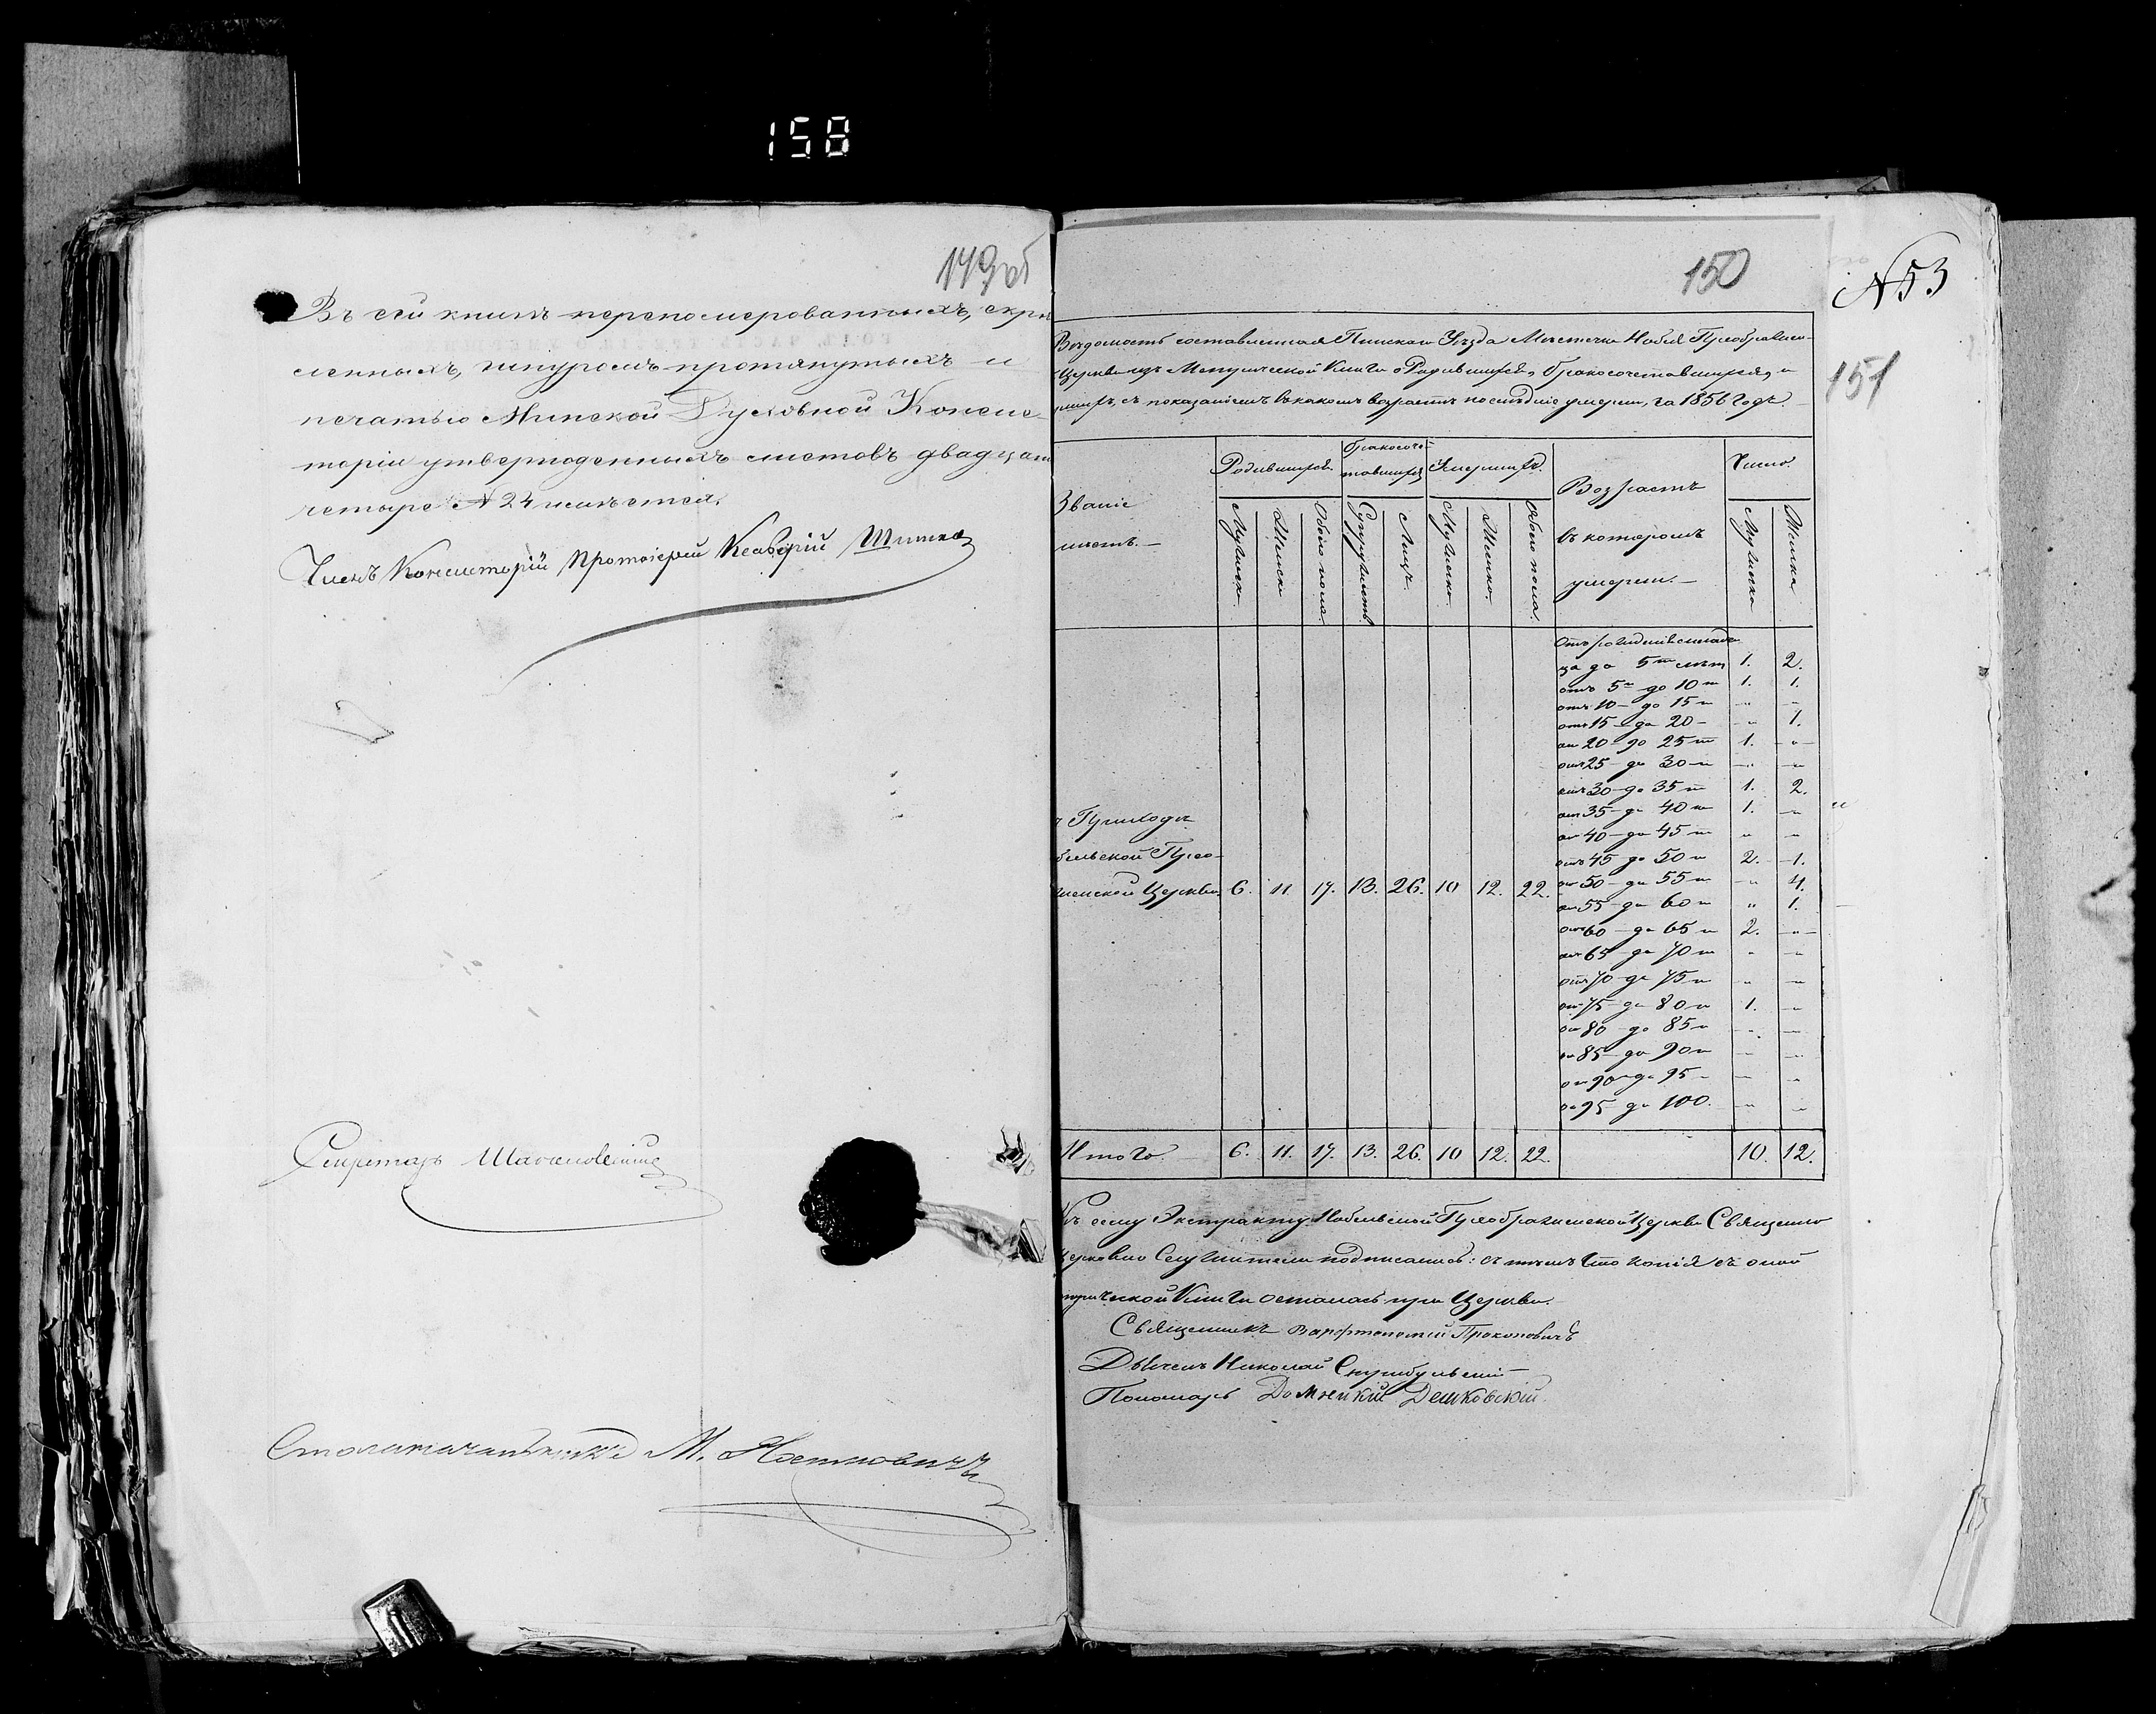 158
149об
Въ сей книгѣ перенумерованныхъ, скрѣ
пленныхъ, шнуромъ протянутыхъ и
печатью Минской Духовной Консис-
торіи утвержденныхъ листовъ двадцать
четыре № 24 имѣется.
Членъ Консисторіи Протоіерей
Секретарь
Столоначальникъ М.
150
N 53
151
Вѣдомость составленная Пинскаго Уѣзда Мѣстечка Нобля Преображен-
Церкви изъ Метрической Книги о Родившихся, бракосочетавшихся, и
ршихъ, съ показаніемъ въ какомъ возрастѣ послѣдніе умерли, за 1856 Годъ.
Званіе
мѣстъ.
Родившихся
бракосоче-
тавшихся
Умершихъ.
Возрастъ
въ которомъ
умерли.
Число.
Мужеска.
Женска
Обоего пола.
Супружествъ
Лицъ.
Мужеска.
Женска.
Обоего пола.
Мужеска
Женска
Отъ рожденія
до 5ти лѣтъ 1. 2.
отъ 5 до 10 1. 1.
отъ 10 до 15 „ „
отъ 15 до 20 „ 1.
отъ 20 до 25 1. „
отъ 25 до 30 „ „
отъ 30 до 35 1. 2.
отъ 35 до 40 1. „
отъ 40 до 45 „ „
отъ 45 до 50 2. 1.
отъ 50 до 55 „ 4.
отъ 55 до 60 „ 1.
отъ 60 до 65 2. „
отъ 65 до 70 „ „
отъ 70 до 75 „ „
отъ 75 до 80 1. „
отъ 80 до 85 „ „
отъ 85 до 90 „ „
отъ 90 до 95 „ „
отъ 95 до 100. „ „
Приходѣ
бельской Прео-
женской Церкви 6. 11. 17. 13. 26. 10 12. 22.
Итого. 6. 11. 17. 13. 26. 10 12. 22. 10. 12.
Къ сему Экстракту Нобельской Преображенской Церкви Священно
Церковно Служители подписались: съ тѣмъ что копія съ оной
трической Книги осталась при Церкви.
Священникъ Варфоломей Прокоповичъ
Дьячекъ Николай
Пономарь Дешковскій